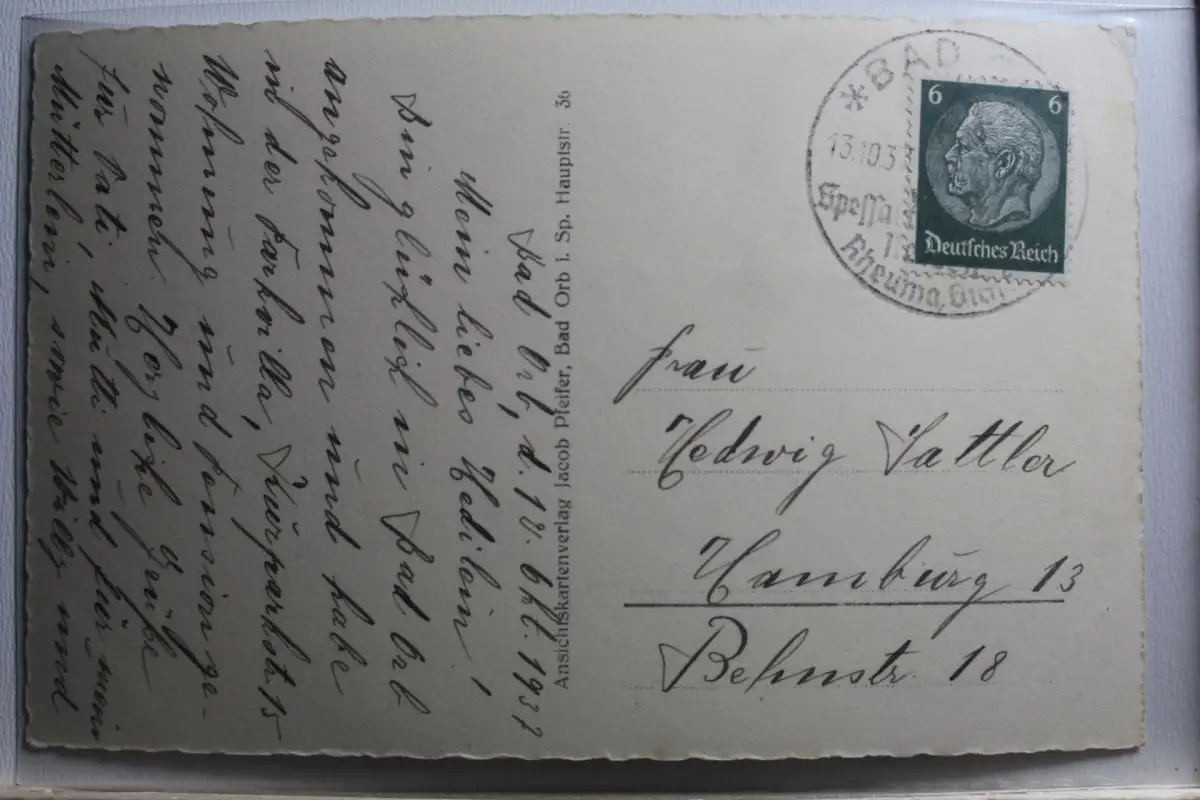 Bad Orb, d. 12. Okt. 1937
Mein liebes Hedilein,
bin glücklich in Bad Orb
angekommen und habe
in der Parkvilla, Kurparkstr 15
Wohnung und Pension ge-
nommen. Herzliche Grüße
für Vati, Mutti und für mein
Mütterlein, sowie Willy und
Ansichtskartenverlag Jacob Pfeifer, Bad Orb i. Sp. Hauptstr. 36
* BAD
13.10.3
Spessa
Rheuma, Gic
6 6
Deutsches Reich
Frau
Hedwig Sattler
Hamburg 13
Behnstr. 18